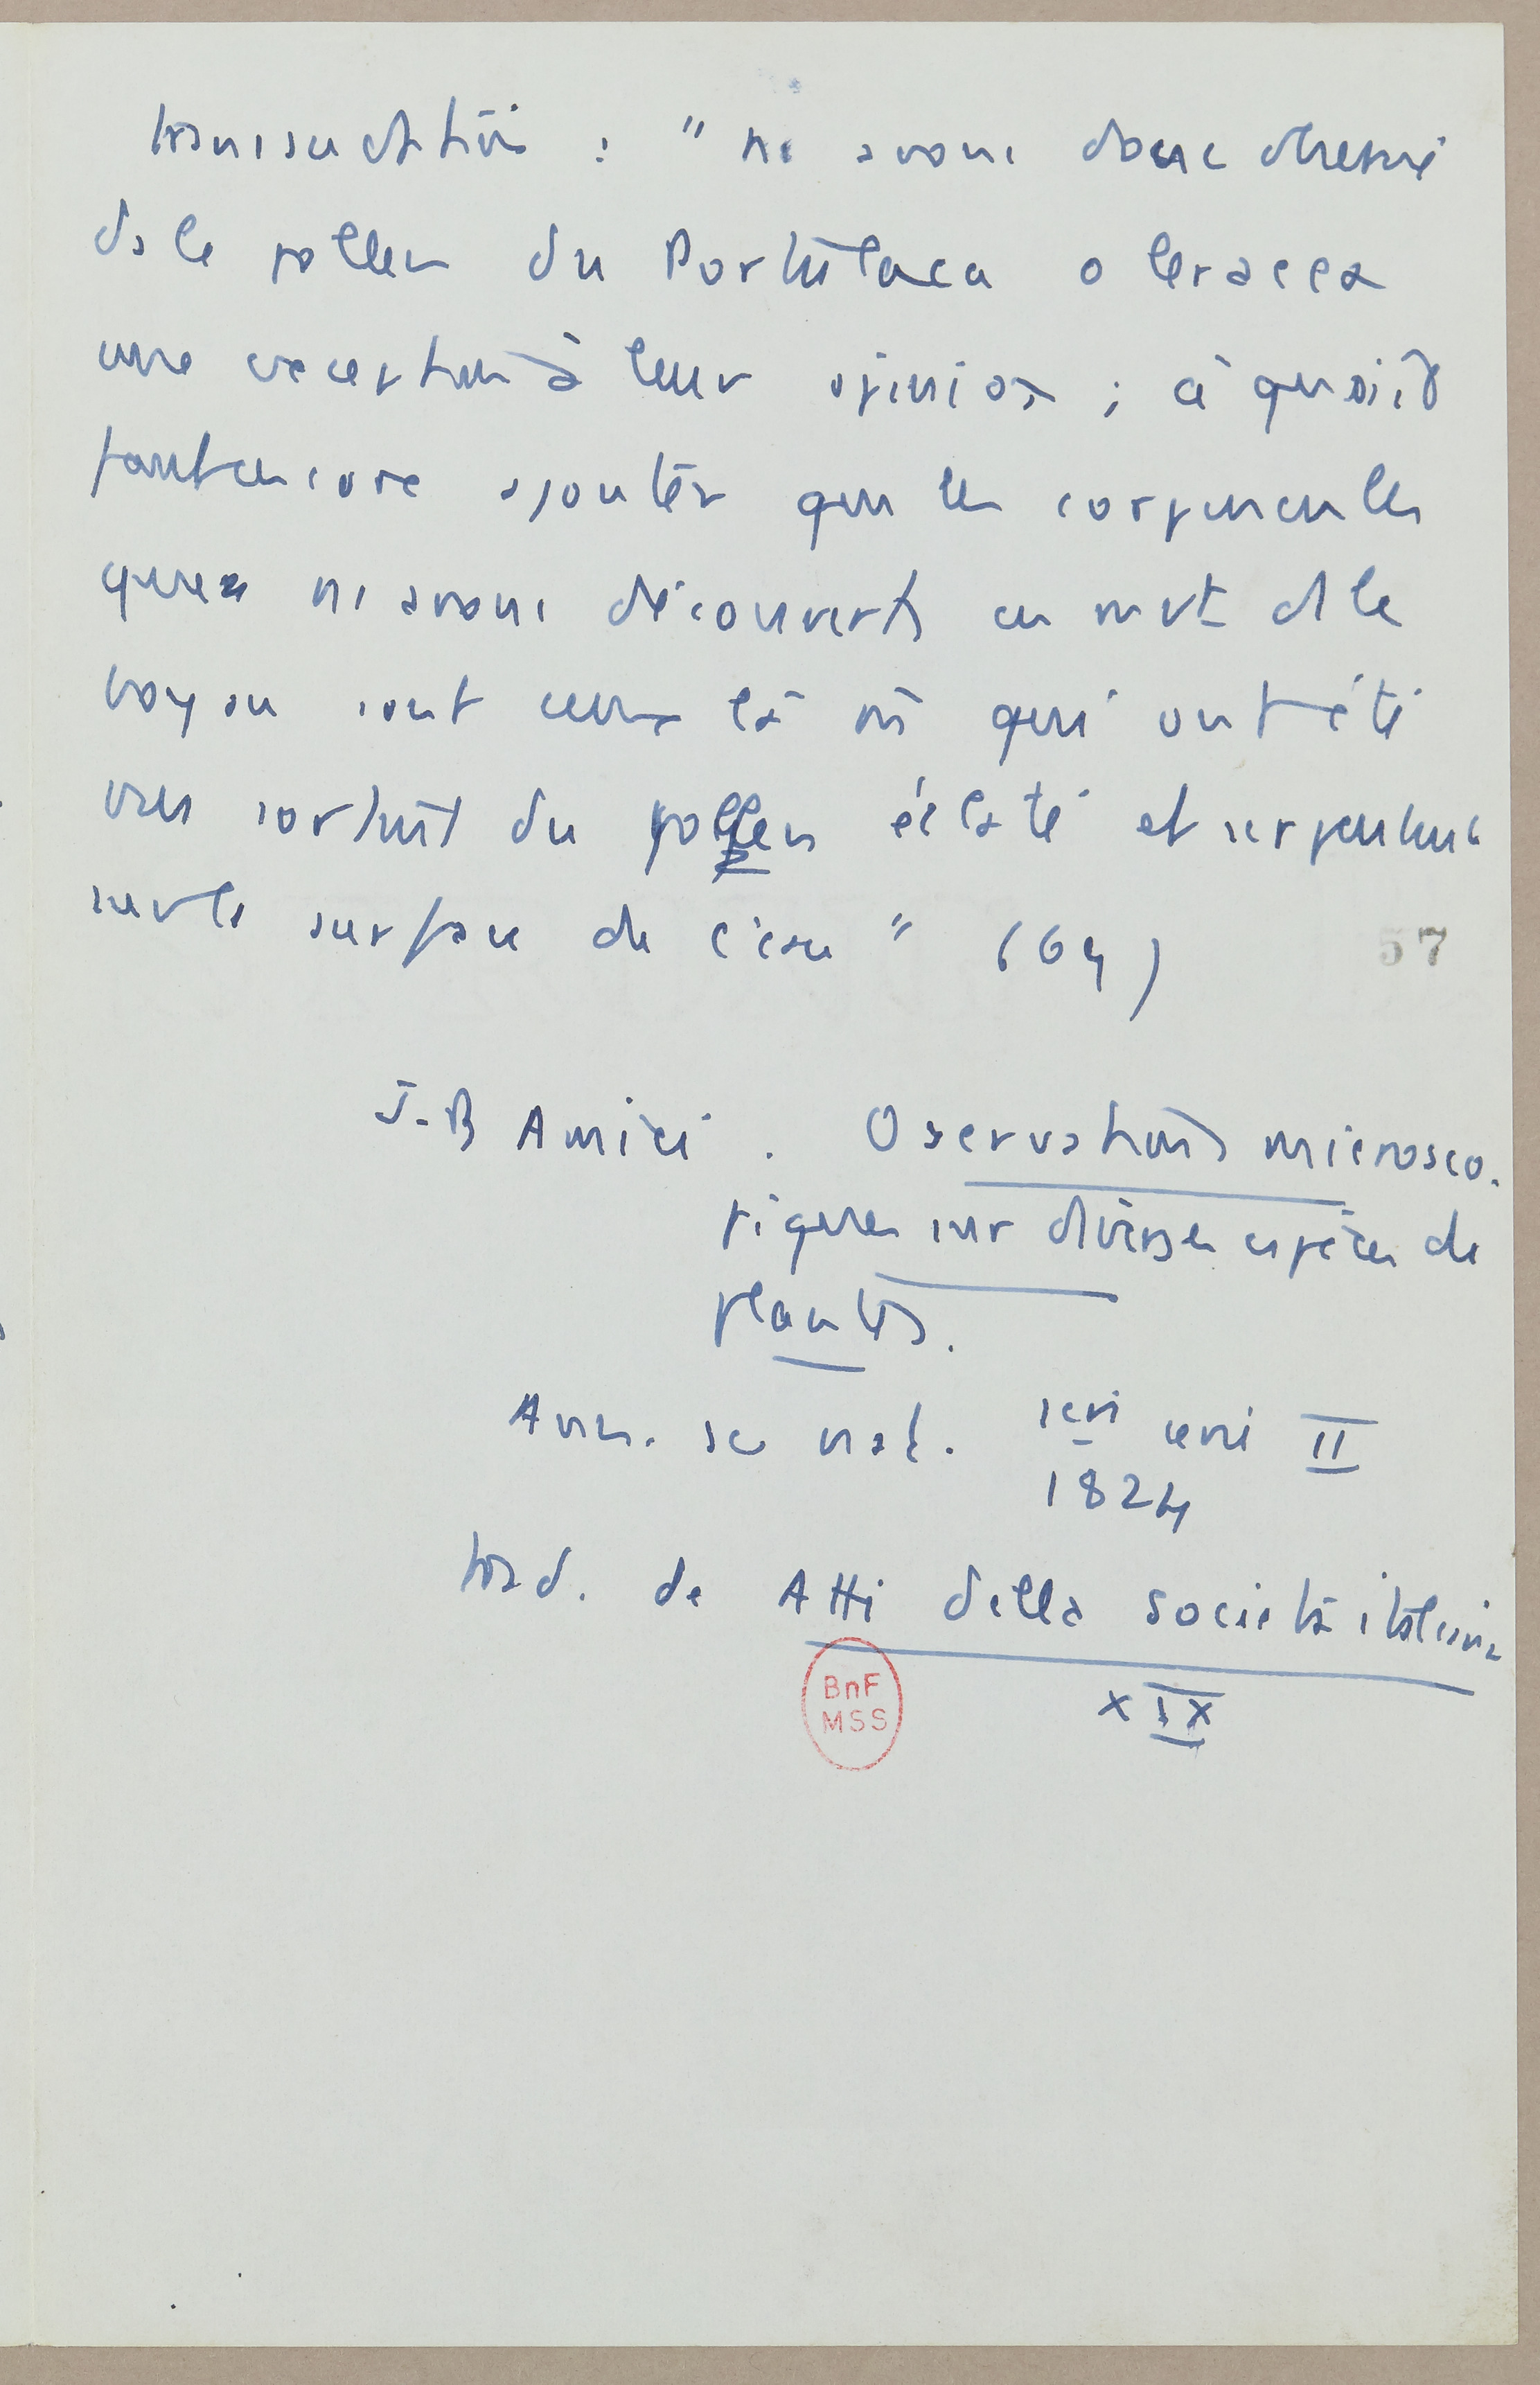 : " ns avons donc observé
ds le pollen du Portulaca oleracea
une exception à leur opinion ; à quoi il
faut encore ajouter que les corpuscules
que ns avons découverts en mvt ds le
boyau sont ceux là qui ont été
vus sortir du pollen éclaté et serpentant
sur la surface de l'eau " (64)
57
J-B Amici . Oservations microsco.
piques sur diverses espèces de
plantes.
Ann. sc nat. II
1824
trad. de Atti della società italiana
XIX
BnF
MSS